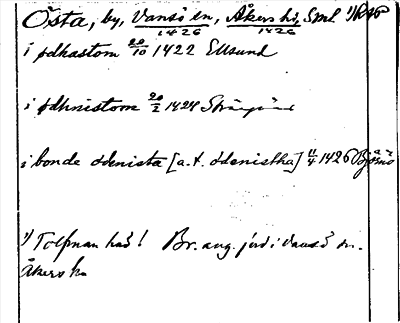 Östa, by, Vansö sn, Åkers hd, Sml
1426 1426
i ødhastom 20/10 1422 Eksund
i ødhnistom 20/2 1424
i bonde ödenista [a.t. ödenistha] 11/4 1426 Björsö
1) Tolfman här! Br. ang. jord i Vansö sn.
Åkers hd